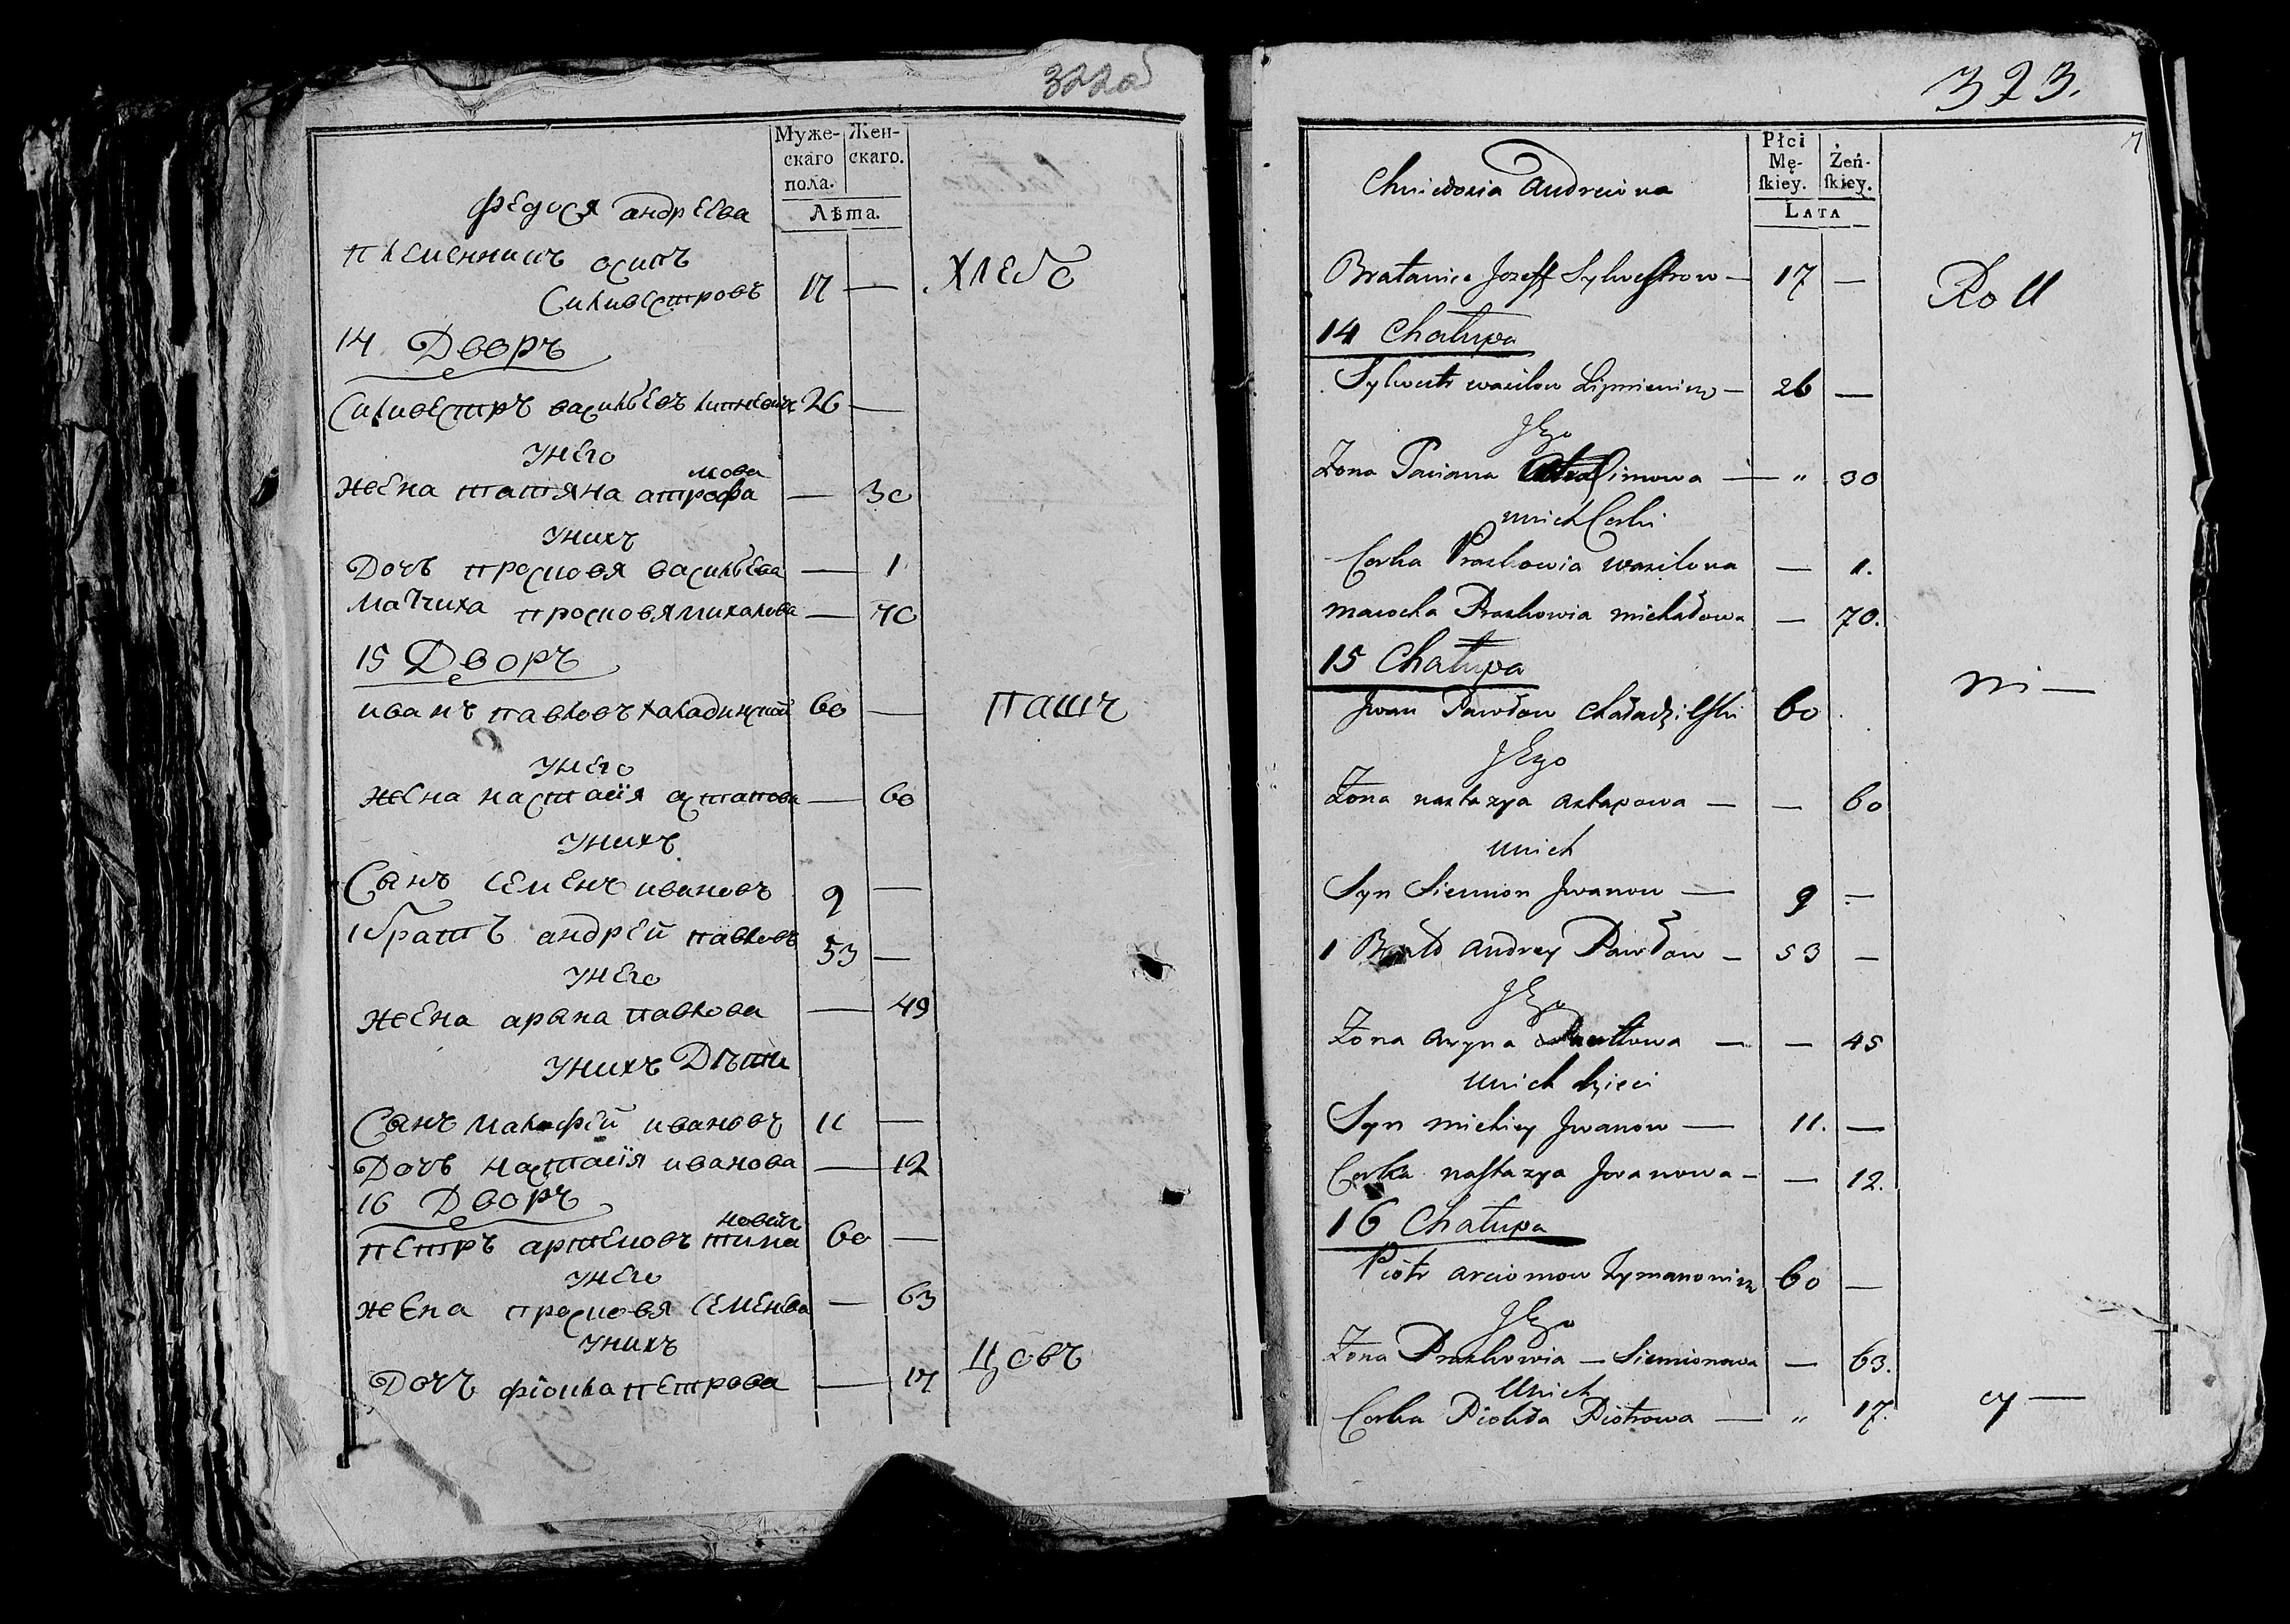 322об
Муже- Жен-
скаго скаго.
пола.
Лѣта.
Федося андреева
племенникъ осипъ
Силивестровъ 17 — ХЛЕБО
14 Дворъ
Силивестръ васильевъ липневичъ 26 —
унего
жена татяна атрофимова — 30
унихъ
Дочъ просковя васильева — 1
Матчиха просковя михалова — 70
15 Дворъ
иванъ павловъ халадинский 60 — пашч
унего
жена настасiя астапова — 60
унихъ
Сынъ семенъ ивановъ 9 —
1 братъ андрей павловъ 53 —
унего
жена арына павлова — 49
унихъ Дѣти
Сынъ малофей ивановъ 11 —
Дочъ настасiя иванова — 12
16 Дворъ
петръ артемовъ тимановичъ 60 —
унего
жена просковя семенова — 63
унихъ
Дочъ фiокла петрова — 17 цовъ
323.
Płci
Mę- Żeń-
ſkiey. ſkiey.
LATA
Chwiedosia Andreiowna
Bratanice Jozeff Sylwestrow — 17 — Roll
14 Chałupa
Sylwestr wasilow Lipniewicz — 26 —
Jego
Żona Taciana Atrafimowa — " 30
unich Corki
Corka Praskowia wasilowa — 1.
macocha Praskowia michałowa — 70.
15 Chałupa
ni —
Jwan Pawłow Chaładzilſki 60
Jego
Żona nastazya astapowa — — 60
unich
Syn Siemion Jwanow — 9 —
1 Brat andrey Pawłow — 53 —
Jego
Żona aryna Pawłowa — — 45
unich dzieci
Syn michiey Jwanow — 11. —
Corka naſtazya Jwanowa — — 12.
16 Chałupa
Piotr arciomow Tymanowicz 60 —
Jego
Żona Praskowia — Siemionowa — 63.
Unich
Corka Piokła Piotrowa — " 17. cy —